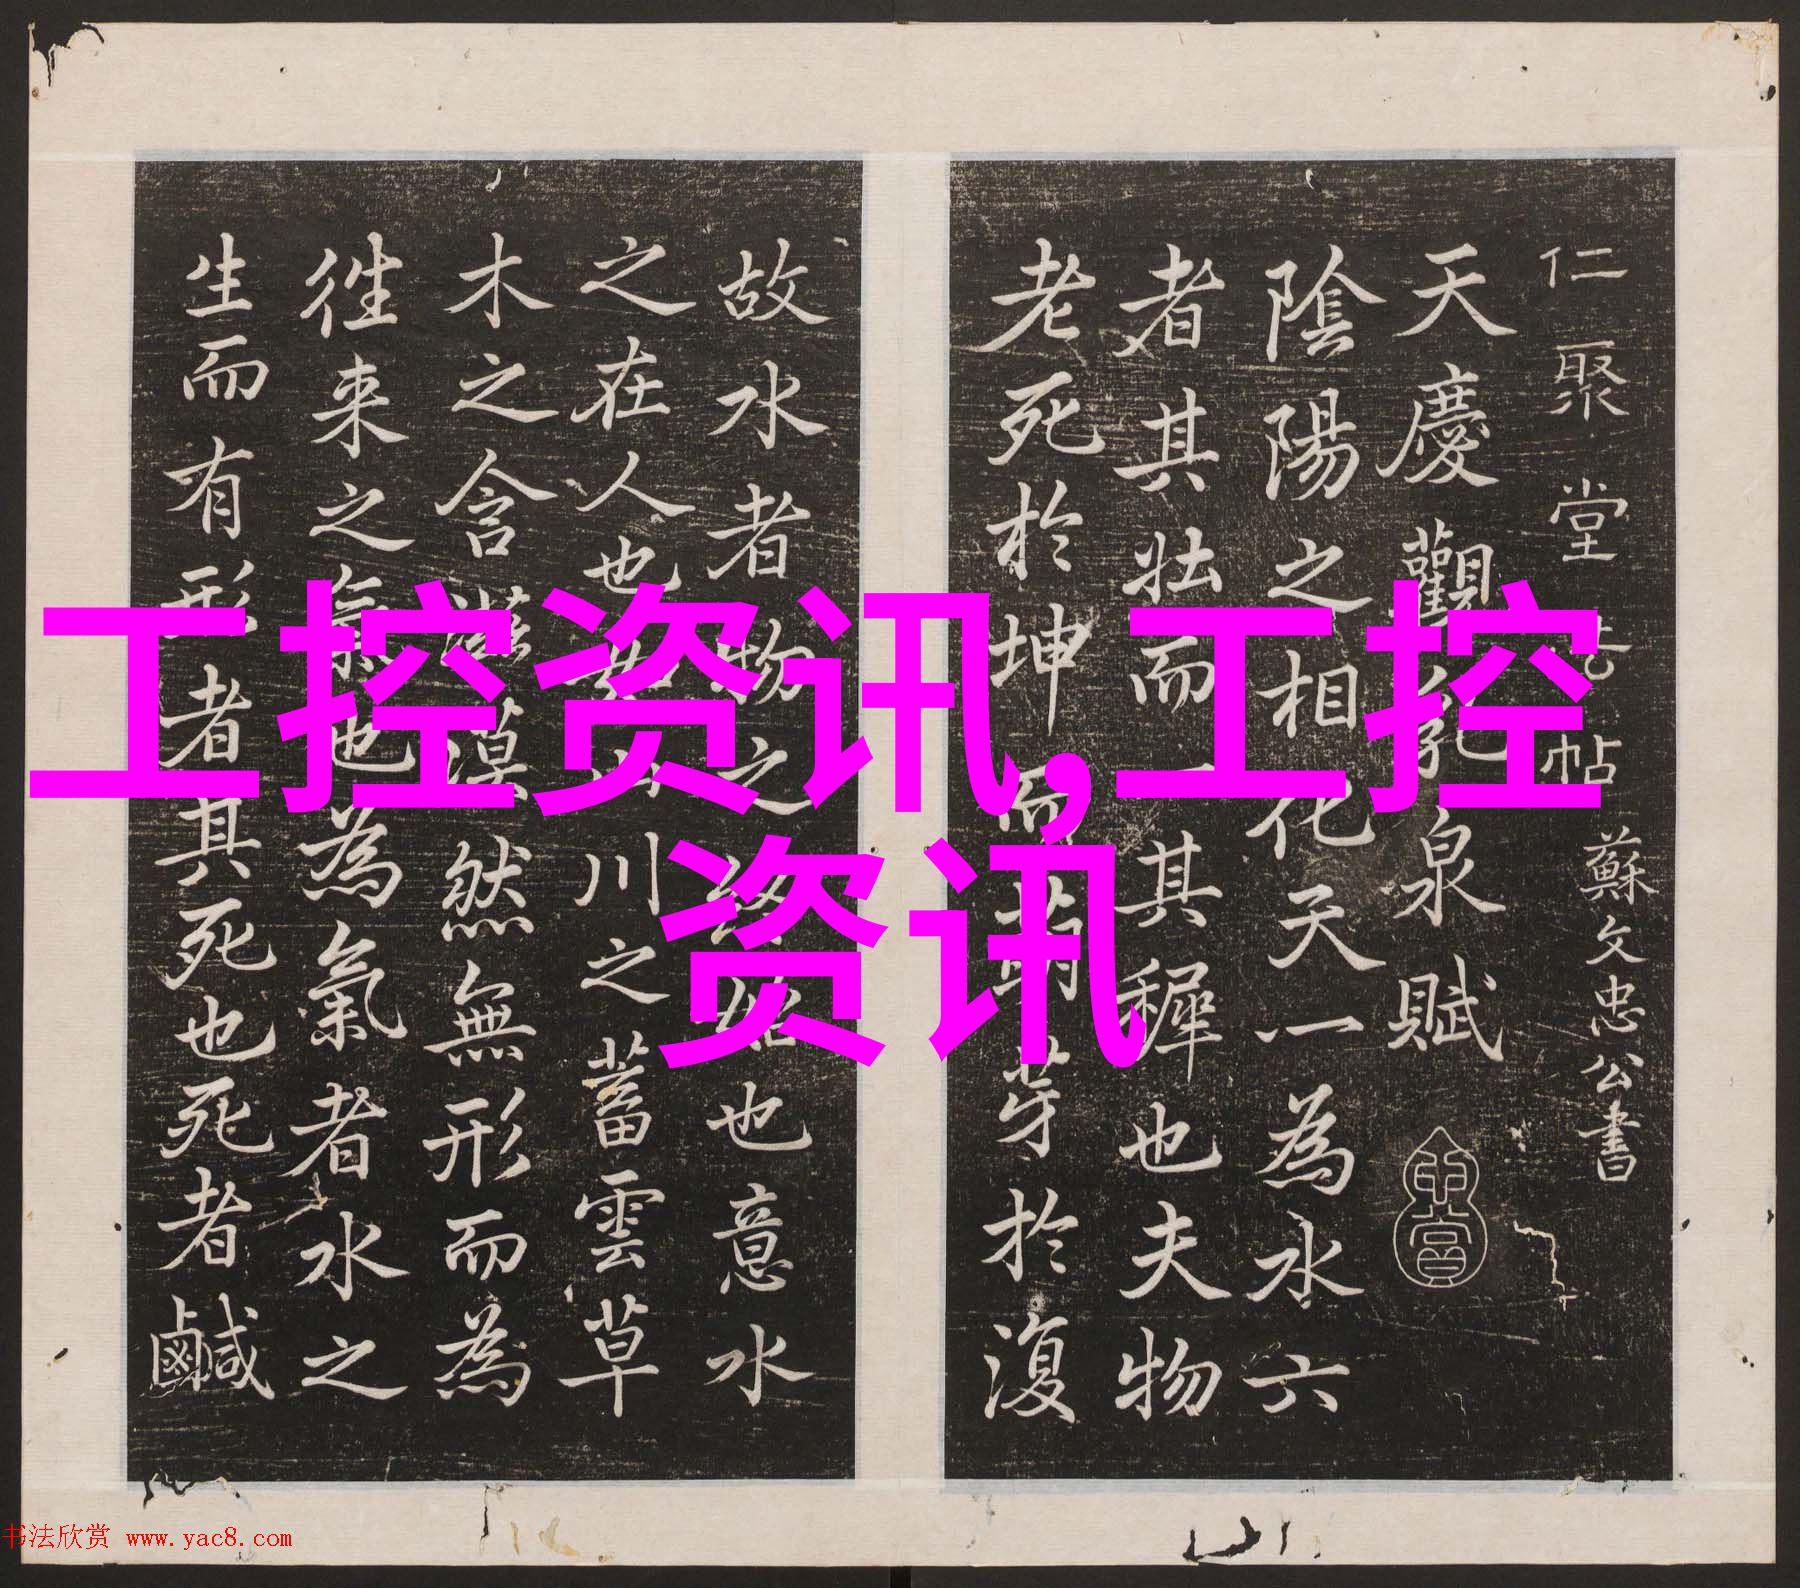 仁聚堂法帖 蘇文忠公書
天慶觀乳泉賦
陰陽之相化天一為水六
者其壯而一其穉也夫物
老死於坤而萌芽於復
故水者物之終始也意水
之在人也如山川之蓄雲草
木之含滋漠然無形而為
徃来之氣也為氣者水之
生而有形者其死也死者鹹
工控资讯,工控
资讯
书法欣赏 www.yac8.com